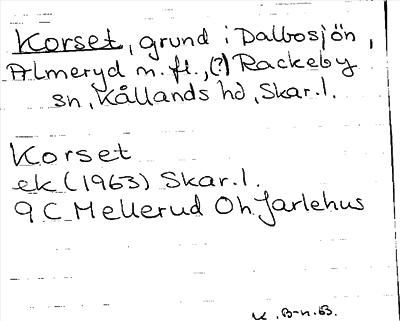 Korset, grund i Dalbosjön,
Almeryd m. fl., (?) Rackeby
sn, Kållands hd, Skar.l.
Korset
ek (1963) Skar.l.
9 C Mellerud Oh Jarlehus
K. B-n. 63.